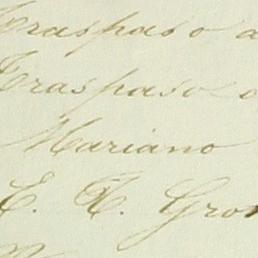 Traspaso a
Traspaso
Mariano
E. H. Gro